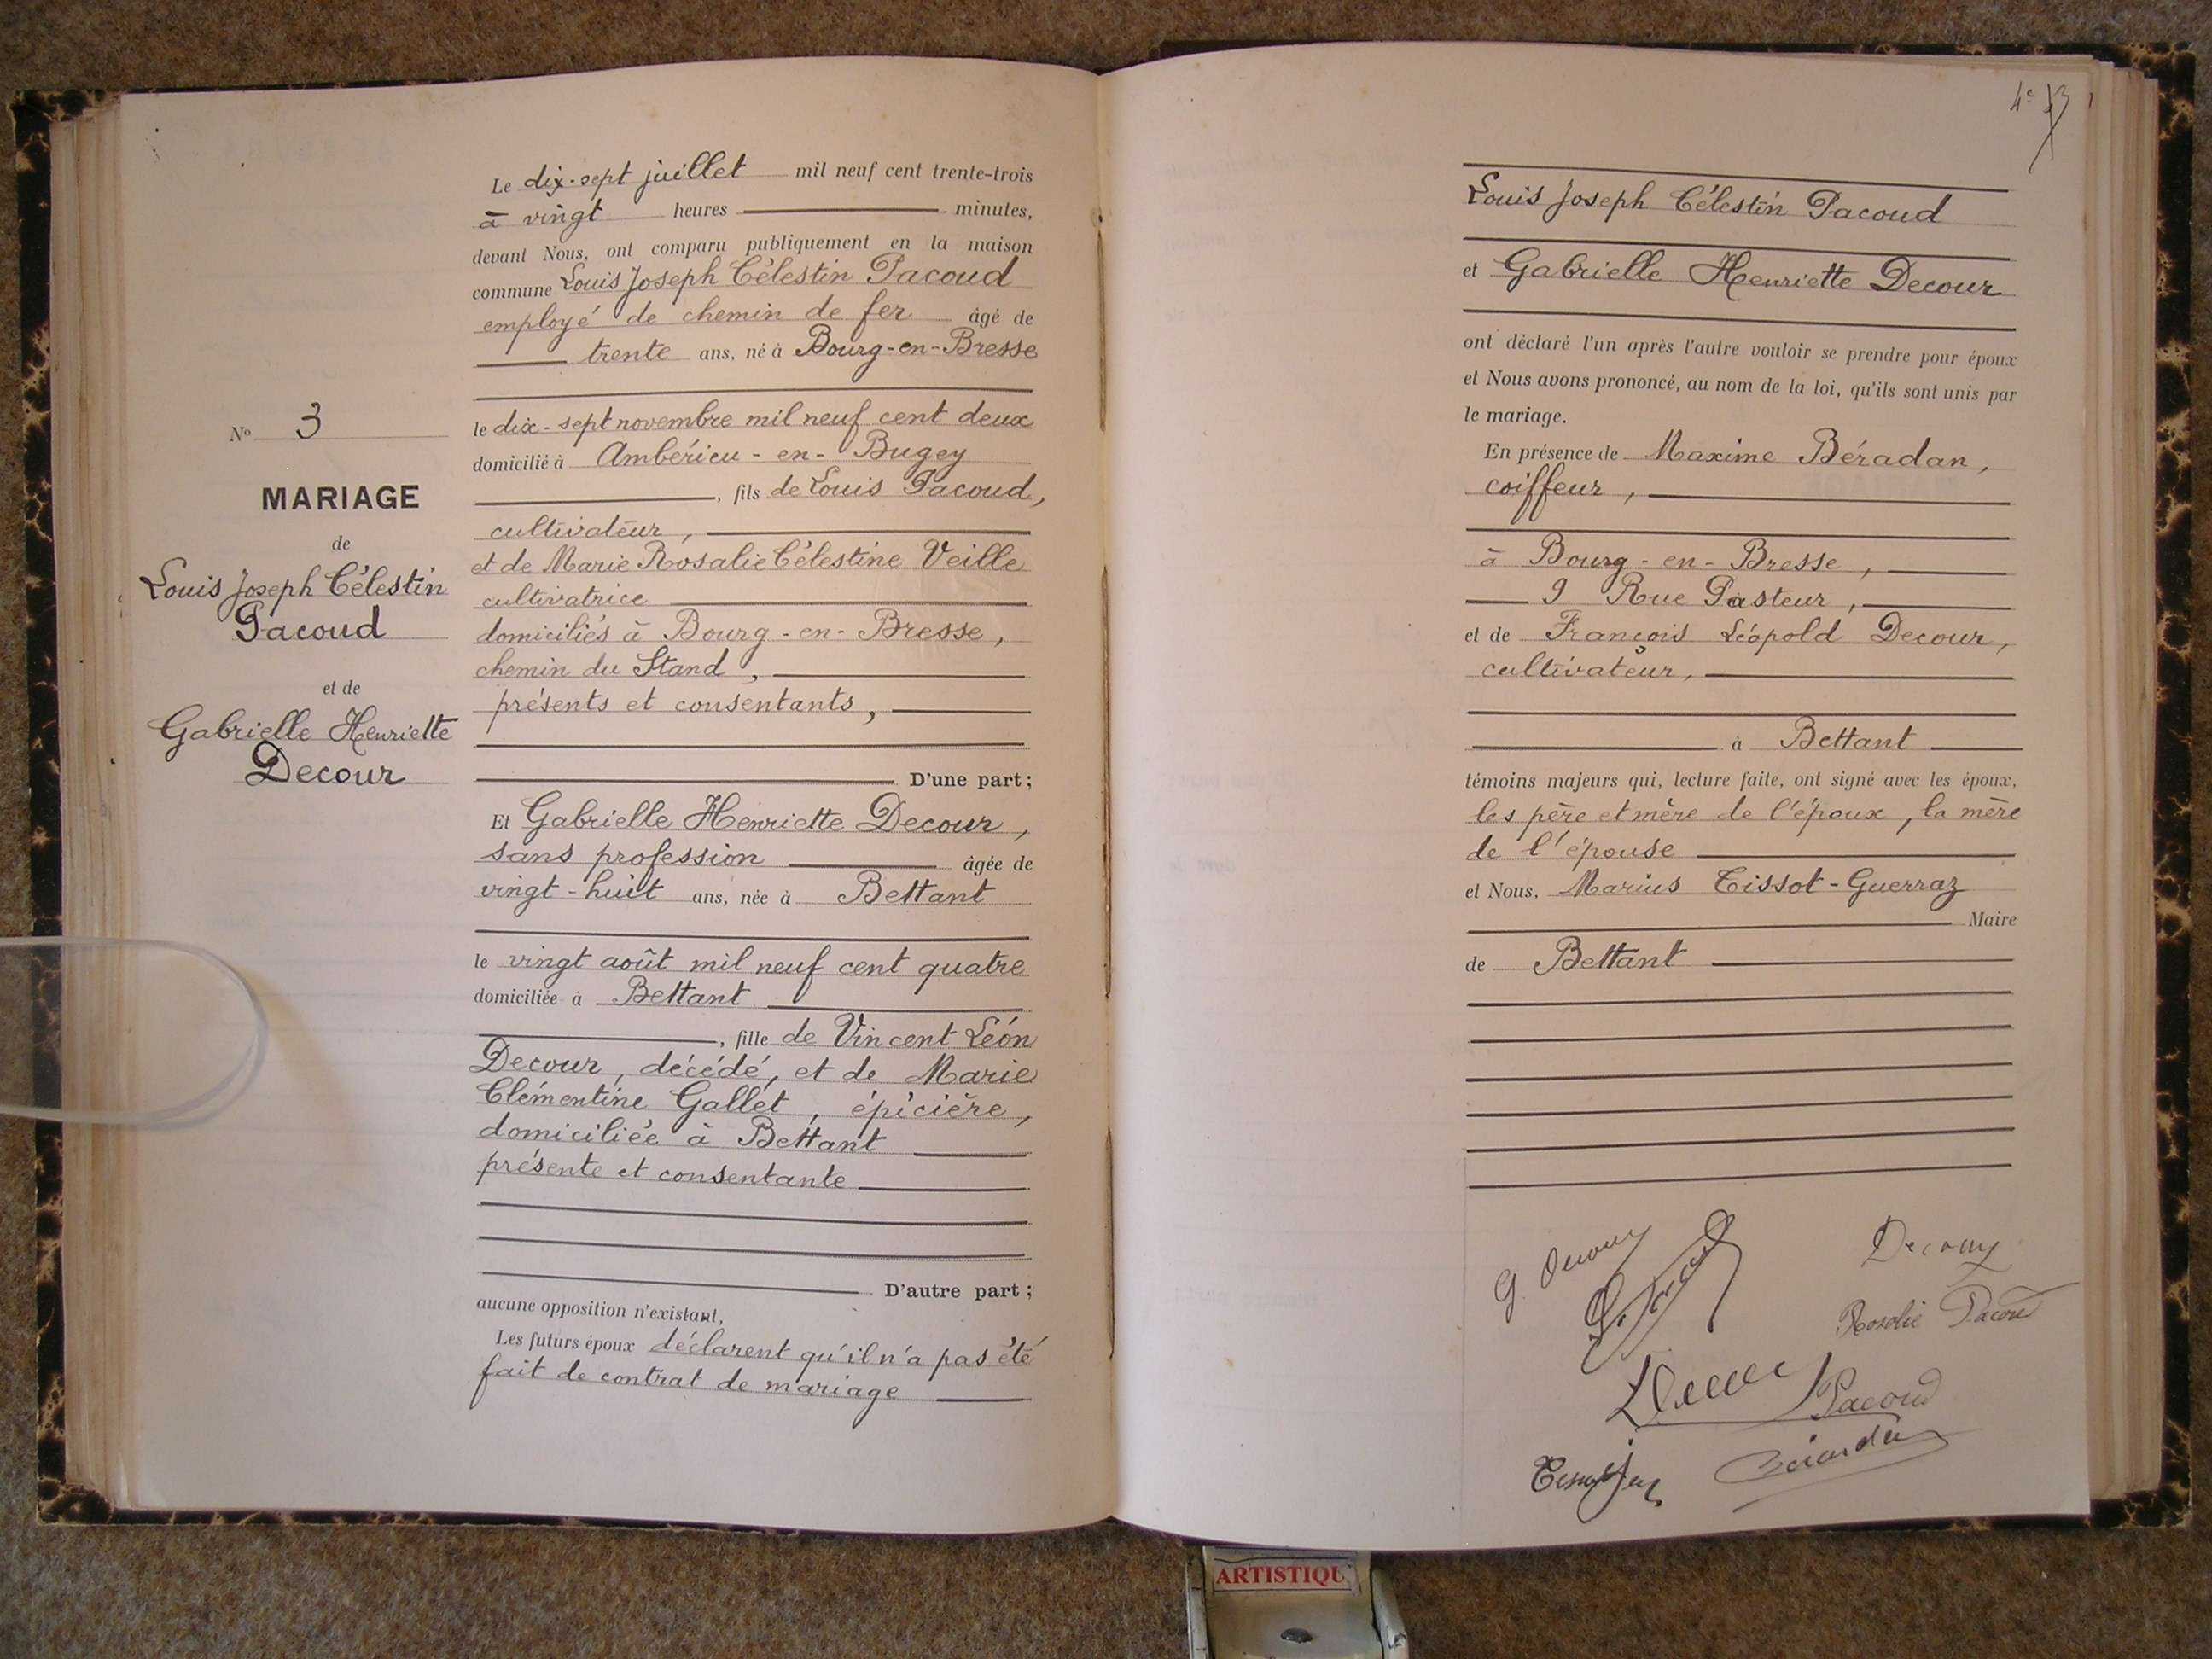 Le dix-sept juillet mil neuf cent trente-trois
à vingt heures minutes,
devant Nous, ont comparu publiquement en la maison
commune Louis Joseph Célestin Pacoud
employé de chemin de fer âgé de
trente ans, né à Bourg-en-Bresse
le dix-sept novembre mil neuf cent deux
domicilié à Ambérieu-en-Bugey
, fils de Louis Pacoud,
cultivateur,
et de Marie Rosalie Célestine Veille
cultivatrice
domiciliés à Bourg-en-Bresse,
chemin du Stand,
présents et consentants,
D'une part;
Et Gabrielle Henriette Decour,
sans profession âgée de
vingt-huit ans, née à Bettant
le vingt août mil neuf cent quatre
domiciliée à Bettant
, fille de Vincent Léon
Decour, décédé, et de Marie
Clémentine Gallet, épicière,
domiciliée à Bettant
présente et consentante
D'autre part;
aucune opposition n'existant,
Les futurs époux déclarent qu'il n'a pas été
fait de contrat de mariage
No 3
MARIAGE
de
Louis Joseph Célestin
Pacoud
et de
Gabrielle Henriette
Decour
4e
Louis Joseph Célestin Pacoud
et Gabrielle Henriette Decour
ont déclaré l'un après l'autre vouloir se prendre pour époux
et Nous avons prononcé, au nom de la loi, qu'ils sont unis par
le mariage.
En présence de Maxime Béradan,
coiffeur,
à Bourg-en-Bresse,
9 Rue Pasteur,
et de François Léopold Decour,
cultivateur,
à Bettant
témoins majeurs qui, lecture faite, ont signé avec les époux,
les père et mère de l'époux, la mère
de l'épouse
et Nous, Marius Tissot-Guerraz
Maire
de Bettant
Rosalie Pacoud
Pacoud
ARTISTIQU